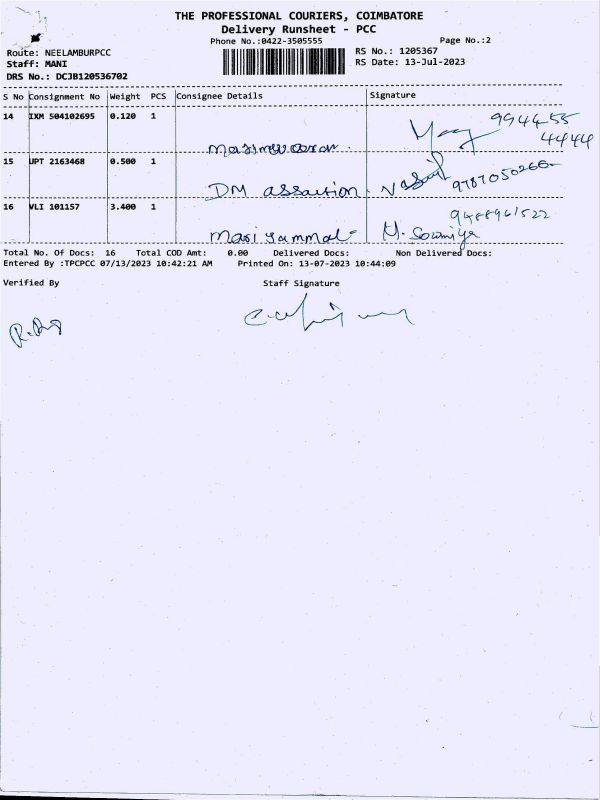 THE PROFESSIONAL COURIERS, COIMBATORE
Delivery Runsheet - PCC
Phone No.:0422-3505555 Page No.:2
Route: NEELAMBURPCC RS No.: 1205367
Staff: MANI RS Date: 13-Jul-2023
DRS No.: DCJB120536702
S No Consignment No Weight PCS Consignee Details Signature
14 IXM 504102695 0.120 1 994455
4444
15 UPT 2163468 0.500 1 DM 9787050260
16 VLI 101157 3.400 1 9488961522
Mariyammal M. Sowmiya
Total No. Of Docs: 16 Total COD Amt: 0.00 Delivered Docs: Non Delivered Docs:
Entered By :TPCPCC 07/13/2023 10:42:21 AM Printed On: 13-07-2023 10:44:09
Verified By Staff Signature